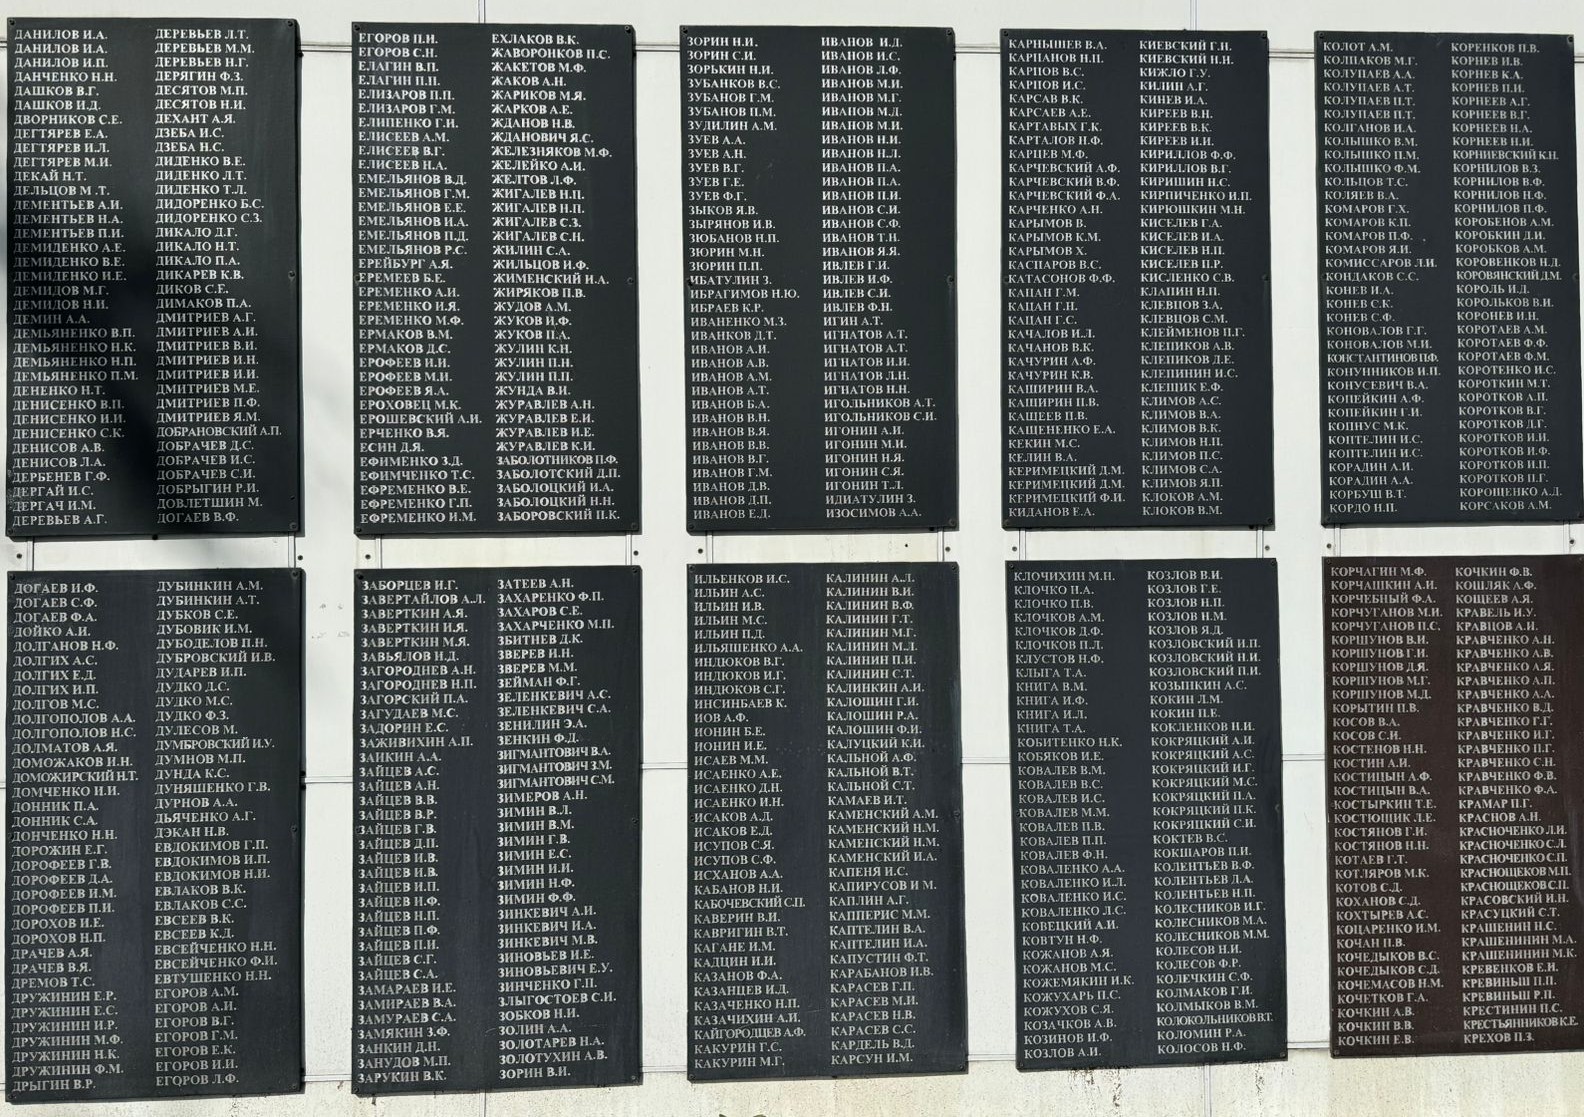 ДАНИЛОВ И.А.
ДАНИЛОВ И.А.
ДАНИЛОВ И.П.
ДАНЧЕНКО Н.Н.
ДАШКОВ В.Г.
ДАШКОВ И.Д.
ДВОРНИКОВ С.Е.
ДЕГТЯРЕВ Е.А.
ДЕГТЯРЕВ И.Л.
ДЕГТЯРЕВ М.И.
ДЕКАЙ Н.Т.
ДЕЛЬЦОВ М.Т.
ДЕМЕНТЬЕВ А.И.
ДЕМЕНТЬЕВ Н.А.
ДЕМЕНТЬЕВ П.И.
ДЕМИДЕНКО А.Е.
ДЕМИДЕНКО В.Е.
ДЕМИДЕНКО И.Е.
ДЕМИДОВ М.Г.
ДЕМИДОВ Н.И.
ДЕМИН А.А.
ДЕМЬЯНЕНКО В.П.
ДЕМЬЯНЕНКО Н.К.
ДЕМЬЯНЕНКО Н.П.
ДЕМЬЯНЕНКО П.М.
ДЕНЕНКО Н.Т.
ДЕНИСЕНКО В.П.
ДЕНИСЕНКО И.И.
ДЕНИСЕНКО С.К.
ДЕНИСОВ А.В.
ДЕНИСОВ Л.А.
ДЕРБЕНЕВ Г.Ф.
ДЕРГАЙ И.С.
ДЕРГАЧ И.М.
ДЕРЕВЬЕВ А.Г.
ДЕРЕВЬЕВ Л.Т.
ДЕРЕВЬЕВ М.М.
ДЕРЕВЬЕВ Н.Г.
ДЕРЯГИН Ф.З.
ДЕСЯТОВ М.П.
ДЕСЯТОВ Н.И.
ДЕХАНТ А.Я.
ДЗЕБА И.С.
ДЗЕБА Н.С.
ДИДЕНКО В.Е.
ДИДЕНКО Л.Т.
ДИДЕНКО Т.Л.
ДИДОРЕНКО Б.С.
ДИДОРЕНКО С.З.
ДИКАЛО Д.Г.
ДИКАЛО Н.Т.
ДИКАЛО П.А.
ДИКАРЕВ К.В.
ДИКОВ С.Е.
ДИМАКОВ П.А.
ДМИТРИЕВ А.Г.
ДМИТРИЕВ А.И.
ДМИТРИЕВ В.И.
ДМИТРИЕВ И.Н.
ДМИТРИЕВ И.И.
ДМИТРИЕВ М.Е.
ДМИТРИЕВ П.Ф.
ДМИТРИЕВ Я.М.
ДОБРАНОВСКИЙ А.П.
ДОБРАЧЕВ Д.С.
ДОБРАЧЕВ И.С.
ДОБРАЧЕВ С.И.
ДОБРЫГИН Р.И.
ДОВЛЕТШИН М.
ДОГАЕВ В.Ф.
ЕГОРОВ П.Н.
ЕГОРОВ С.Н.
ЕЛАГИН В.П.
ЕЛАГИН П.П.
ЕЛИЗАРОВ П.П.
ЕЛИЗАРОВ Г.М.
ЕЛИПЕНКО Г.И.
ЕЛИСЕЕВ А.М.
ЕЛИСЕЕВ В.Г.
ЕЛИСЕЕВ Н.А.
ЕМЕЛЬЯНОВ В.Д.
ЕМЕЛЬЯНОВ Г.М.
ЕМЕЛЬЯНОВ Е.Е.
ЕМЕЛЬЯНОВ Н.А.
ЕМЕЛЬЯНОВ П.Д.
ЕМЕЛЬЯНОВ Р.С.
ЕРЕЙБУРГ А.Я.
ЕРЕМЕЕВ Б.Е.
ЕРЕМЕНКО А.И.
ЕРЕМЕНКО И.Я.
ЕРЕМЕНКО М.Ф.
ЕРМАКОВ В.М.
ЕРМАКОВ Д.С.
ЕРОФЕЕВ И.И.
ЕРОФЕЕВ М.И.
ЕРОФЕЕВ Я.А.
ЕРОХОВЕЦ М.К.
ЕРОШЕВСКИЙ А.И.
ЕРЧЕНКО В.Я.
ЕСИН Д.Я.
ЕФИМЕНКО З.Д.
ЕФИМЧЕНКО Т.С.
ЕФРЕМЕНКО В.Е.
ЕФРЕМЕНКО Г.П.
ЕФРЕМЕНКО И.М.
ЕХЛАКОВ В.К.
ЖАВОРОНКОВ П.С.
ЖАКЕТОВ М.Ф.
ЖАКОВ А.Н.
ЖАРИКОВ М.Я.
ЖАРКОВ А.Е.
ЖДАНОВ Н.В.
ЖДАНОВИЧ Я.С.
ЖЕЛЕЗНЯКОВ М.Ф.
ЖЕЛЕЙКО А.И.
ЖЕЛТОВ Л.Ф.
ЖИГАЛЕВ Н.П.
ЖИГАЛЕВ Н.П.
ЖИГАЛЕВ С.З.
ЖИГАЛЕВ С.Н.
ЖИЛИН С.А.
ЖИЛЬЦОВ И.Ф.
ЖИМЕНСКИЙ И.А.
ЖИРЯКОВ П.В.
ЖУДОВ А.М.
ЖУКОВ И.Ф.
ЖУКОВ П.А.
ЖУЛИН К.Н.
ЖУЛИН П.Н.
ЖУЛИН П.П.
ЖУНДА В.И.
ЖУРАВЛЕВ А.Н.
ЖУРАВЛЕВ Е.И.
ЖУРАВЛЕВ И.Е.
ЖУРАВЛЕВ К.И.
ЗАБОЛОТНИКОВ П.Ф.
ЗАБОЛОТСКИЙ Д.П.
ЗАБОЛОЦКИЙ И.А.
ЗАБОЛОЦКИЙ Н.Н.
ЗАБОРОВСКИЙ П.К.
ЗОРИН Н.И.
ЗОРИН С.И.
ЗОРЬКИН Н.И.
ЗУБАНКОВ В.С.
ЗУБАНОВ Г.М.
ЗУБАНОВ П.М.
ЗУДИЛИН А.М.
ЗУЕВ А.А.
ЗУЕВ А.Н.
ЗУЕВ В.Г.
ЗУЕВ Г.Е.
ЗУЕВ Ф.Г.
ЗЫКОВ Я.В.
ЗЫРЯНОВ И.В.
ЗЮБАНОВ Н.П.
ЗЮРИН М.Н.
ЗЮРИН П.П.
ИБАТУЛИН З.
ИБРАГИМОВ Н.Ю.
ИБРАЕВ К.Р.
ИВАНЕНКО М.З.
ИВАНКОВ Д.Т.
ИВАНОВ А.И.
ИВАНОВ А.В.
ИВАНОВ А.М.
ИВАНОВ А.Т.
ИВАНОВ Б.А.
ИВАНОВ В.Н.
ИВАНОВ В.Я.
ИВАНОВ В.В.
ИВАНОВ В.Г.
ИВАНОВ Г.М.
ИВАНОВ Д.В.
ИВАНОВ Д.П.
ИВАНОВ Е.Д.
ИВАНОВ И.Д.
ИВАНОВ И.С.
ИВАНОВ Л.Ф.
ИВАНОВ М.И.
ИВАНОВ М.Г.
ИВАНОВ М.Д.
ИВАНОВ М.И.
ИВАНОВ Н.И.
ИВАНОВ Н.Л.
ИВАНОВ П.А.
ИВАНОВ П.А.
ИВАНОВ П.И.
ИВАНОВ С.И.
ИВАНОВ С.Ф.
ИВАНОВ Т.Н.
ИВАНОВ Я.Я.
ИВЛЕВ Г.И.
ИВЛЕВ И.Ф.
ИВЛЕВ С.И.
ИВЛЕВ Ф.Н.
ИГИН А.Т.
ИГНАТОВ А.Т.
ИГНАТОВ А.Т.
ИГНАТОВ И.И.
ИГНАТОВ Л.Н.
ИГНАТОВ Н.Н.
ИГОЛЬНИКОВ А.Т.
ИГОЛЬНИКОВ С.И.
ИГОНИН А.И.
ИГОНИН М.И.
ИГОНИН Н.Я.
ИГОНИН С.Я.
ИГОНИН Т.Л.
ИДИАТУЛИН З.
ИЗОСИМОВ А.А.
КАРНЫШЕВ В.А.
КАРПАНОВ Н.П.
КАРПОВ В.С.
КАРПОВ И.С.
КАРСАВ В.К.
КАРСАЕВ А.Е.
КАРТАВЫХ Г.К.
КАРТАЛОВ Н.Ф.
КАРЦЕВ М.Ф.
КАРЧЕВСКИЙ А.Ф.
КАРЧЕВСКИЙ В.Ф.
КАРЧЕВСКИЙ Ф.А.
КАРЧЕНКО А.Н.
КАРЫМОВ В.
КАРЫМОВ К.М.
КАРЫМОВ Х.
КАСПАРОВ В.С.
КАТАСОНОВ Ф.Ф.
КАЦАН Г.М.
КАЦАН Г.П.
КАЦАН Г.С.
КАЧАЛОВ И.Л.
КАЧАНОВ В.К.
КАЧУРИН А.Ф.
КАЧУРИН К.В.
КАШИРИН В.А.
КАШИРИН П.В.
КАШЕЕВ П.В.
КАШЕНЕНКО Е.А.
КЕКИН М.С.
КЕЛИН В.А.
КЕРИМЕЦКИЙ Д.М.
КЕРИМЕЦКИЙ Д.М.
КЕРИМЕЦКИЙ Ф.И.
КИДАНОВ Е.А.
КИЕВСКИЙ Г.Н.
КИЕВСКИЙ Н.Н.
КИЖЛО Г.У.
КИЛИН А.Г.
КИНЕВ И.А.
КИРЕЕВ В.Н.
КИРЕЕВ В.К.
КИРЕЕВ И.И.
КИРИЛЛОВ Ф.Ф.
КИРИЛЛОВ В.Г.
КИРИШИН Н.С.
КИРПИЧЕНКО И.П.
КИРЮШКИН М.Н.
КИСЕЛЕВ Г.А.
КИСЕЛЕВ И.А.
КИСЕЛЕВ Н.П.
КИСЕЛЕВ П.Р.
КИСЛЕНКО С.В.
КЛАПИН Н.П.
КЛЕВЦОВ З.А.
КЛЕВЦОВ С.М.
КЛЕЙМЕНОВ П.Г.
КЛЕПИКОВ А.В.
КЛЕПИКОВ Д.Е.
КЛЕПИНИН И.С.
КЛЕЩИК Е.Ф.
КЛИМОВ А.С.
КЛИМОВ В.А.
КЛИМОВ В.К.
КЛИМОВ Н.П.
КЛИМОВ П.С.
КЛИМОВ С.А.
КЛИМОВ Я.П.
КЛОКОВ А.М.
КЛОКОВ В.М.
КОЛОТ А.М.
КОЛПАКОВ М.Г.
КОЛУПАЕВ А.А.
КОЛУПАЕВ А.Т.
КОЛУПАЕВ П.Т.
КОЛУПАЕВ П.Т.
КОЛГАНОВ И.А.
КОЛЫШКО В.М.
КОЛЫШКО П.М.
КОЛЫШКО Ф.М.
КОЛЬЦОВ Т.С.
КОЛЯЕВ В.А.
КОМАРОВ Г.Х.
КОМАРОВ К.П.
КОМАРОВ П.Ф.
КОМАРОВ Я.И.
КОМИССАРОВ Л.И.
КОНДАКОВ С.С.
КОНЕВ И.А.
КОНЕВ С.К.
КОНЕВ С.Ф.
КОНОВАЛОВ Г.Г.
КОНОВАЛОВ М.И.
КОНСТАНТИНОВ П.Ф.
КОНУННИКОВ И.П.
КОНУСЕВИЧ В.А.
КОПЕЙКИН А.Ф.
КОПЕЙКИН Г.И.
КОПНУС М.К.
КОПТЕЛИН И.С.
КОПТЕЛИН И.С.
КОРАДИН А.И.
КОРАДИН А.А.
КОРБУШ В.Т.
КОРДО Н.П.
КОРЕНКОВ П.В.
КОРНЕВ И.В.
КОРНЕВ К.А.
КОРНЕВ П.И.
КОРНЕЕВ А.Г.
КОРНЕЕВ В.Г.
КОРНЕЕВ Н.А.
КОРНЕЕВ Н.И.
КОРНИЕВСКИЙ К.Н.
КОРНИЛОВ В.З.
КОРНИЛОВ В.Ф.
КОРНИЛОВ П.Ф.
КОРНИЛОВ П.Ф.
КОРОБЕНОВ А.М.
КОРОБКИН Д.И.
КОРОБКОВ А.М.
КОРОВЕНКОВ Н.Д.
КОРОВЯНСКИЙ Д.М.
КОРОЛЬ И.Д.
КОРОЛЬКОВ В.И.
КОРОНЕВ И.Н.
КОРОТАЕВ А.М.
КОРОТАЕВ Ф.Ф.
КОРОТАЕВ Ф.М.
КОРОТЕНКО И.С.
КОРОТКИН М.Т.
КОРОТКОВ А.П.
КОРОТКОВ В.Г.
КОРОТКОВ Д.Г.
КОРОТКОВ И.И.
КОРОТКОВ И.Ф.
КОРОТКОВ И.П.
КОРОТКОВ П.Г.
КОРОЩЕНКО А.Д.
КОРСАКОВ А.М.
ДОГАЕВ И.Ф.
ДОГАЕВ С.Ф.
ДОГАЕВ Ф.А.
ДОЙКО А.И.
ДОЛГАНОВ Н.Ф.
ДОЛГИХ А.С.
ДОЛГИХ Е.Д.
ДОЛГИХ И.П.
ДОЛГОВ М.С.
ДОЛГОПОЛОВ А.А.
ДОЛГОПОЛОВ Н.С.
ДОЛМАТОВ А.Я.
ДОМОЖАКОВ И.Н.
ДОМОЖИРСКИЙ Н.Т.
ДОМЧЕНКО И.И.
ДОННИК П.А.
ДОННИК С.А.
ДОНЧЕНКО Н.Н.
ДОРОЖИН Е.Г.
ДОРОФЕЕВ Г.В.
ДОРОФЕЕВ Д.А.
ДОРОФЕЕВ И.М.
ДОРОФЕЕВ П.И.
ДОРОХОВ И.Е.
ДОРОХОВ Н.П.
ДРАЧЕВ А.Я.
ДРАЧЕВ В.Я.
ДРЕМОВ Т.С.
ДРУЖИНИН Е.Р.
ДРУЖИНИН Е.С.
ДРУЖИНИН И.Р.
ДРУЖИНИН М.Ф.
ДРУЖИНИН Н.К.
ДРУЖИНИН Ф.М.
ДРЫГИН В.Р.
ДУБИНКИН А.М.
ДУБИНКИН А.Т.
ДУБКОВ С.Е.
ДУБОВИК И.М.
ДУБОДЕЛОВ П.Н.
ДУБРОВСКИЙ И.В.
ДУДАРЕВ И.П.
ДУДКО Д.С.
ДУДКО М.С.
ДУДКО Ф.З.
ДУЛЕСОВ М.
ДУМБРОВСКИЙ И.У.
ДУМНОВ М.П.
ДУНДА К.С.
ДУНЯШЕНКО Г.В.
ДУРНОВ А.А.
ДЬЯЧЕНКО А.Г.
ДЭКАН Н.В.
ЕВДОКИМОВ Г.П.
ЕВДОКИМОВ И.П.
ЕВДОКИМОВ Н.И.
ЕВЛАКОВ В.К.
ЕВЛАКОВ С.С.
ЕВСЕЕВ В.К.
ЕВСЕЕВ К.Д.
ЕВСЕЙЧЕНКО Н.Н.
ЕВСЕЙЧЕНКО Ф.И.
ЕВТУШЕНКО Н.Н.
ЕГОРОВ А.М.
ЕГОРОВ А.И.
ЕГОРОВ В.Г.
ЕГОРОВ Г.М.
ЕГОРОВ Е.К.
ЕГОРОВ И.И.
ЕГОРОВ Л.Ф.
ЗАБОРЦЕВ И.Г.
ЗАВЕРТАЙЛОВ А.Л.
ЗАВЕРТКИН А.Я.
ЗАВЕРТКИН И.Я.
ЗАВЕРТКИН М.Я.
ЗАВЬЯЛОВ И.Д.
ЗАГОРОДНЕВ А.Н.
ЗАГОРОДНЕВ Н.П.
ЗАГОРСКИЙ П.А.
ЗАГУДАЕВ М.С.
ЗАДОРИН Е.С.
ЗАЖИВИХИН А.П.
ЗАИКИН А.А.
ЗАЙЦЕВ А.С.
ЗАЙЦЕВ А.Н.
ЗАЙЦЕВ В.В.
ЗАЙЦЕВ В.Р.
ЗАЙЦЕВ Г.В.
ЗАЙЦЕВ Д.П.
ЗАЙЦЕВ И.В.
ЗАЙЦЕВ И.В.
ЗАЙЦЕВ И.П.
ЗАЙЦЕВ И.Ф.
ЗАЙЦЕВ Н.П.
ЗАЙЦЕВ П.Ф.
ЗАЙЦЕВ П.И.
ЗАЙЦЕВ С.Г.
ЗАЙЦЕВ С.А.
ЗАМАРАЕВ И.Е.
ЗАМИРАЕВ В.А.
ЗАМУРАЕВ С.А.
ЗАМЯКИН З.Ф.
ЗАНКИН Д.Н.
ЗАНУДОВ М.П.
ЗАРУКИН В.К.
ЗАТЕЕВ А.Н.
ЗАХАРЕНКО Ф.П.
ЗАХАРОВ С.Е.
ЗАХАРЧЕНКО М.П.
ЗБИТНЕВ Д.К.
ЗВЕРЕВ И.Н.
ЗВЕРЕВ М.М.
ЗЕЙМАН Ф.Г.
ЗЕЛЕНКЕВИЧ А.С.
ЗЕЛЕНКЕВИЧ С.А.
ЗЕНИЛИН Э.А.
ЗЕНКИН Ф.Д.
ЗИГМАНТОВИЧ В.А.
ЗИГМАНТОВИЧ З.М.
ЗИГМАНТОВИЧ С.М.
ЗИМЕРОВ А.Н.
ЗИМИН В.Л.
ЗИМИН В.М.
ЗИМИН Г.В.
ЗИМИН Е.С.
ЗИМИН И.И.
ЗИМИН Н.Ф.
ЗИМИН Ф.Ф.
ЗИНКЕВИЧ А.И.
ЗИНКЕВИЧ И.А.
ЗИНКЕВИЧ М.В.
ЗИНОВЬЕВ И.Е.
ЗИНОВЬЕВИЧ Е.У.
ЗИНЧЕНКО Г.П.
ЗЛЫГОСТОЕВ С.И.
ЗОБКОВ Н.И.
ЗОЛИН А.А.
ЗОЛОТАРЕВ Н.А.
ЗОЛОТУХИН А.В.
ЗОРИН В.И.
ИЛЬЕНКОВ И.С.
ИЛЬИН А.С.
ИЛЬИН И.В.
ИЛЬИН М.С.
ИЛЬИН П.Д.
ИЛЬЯШЕНКО А.А.
ИНДЮКОВ В.Г.
ИНДЮКОВ И.Г.
ИНДЮКОВ С.Г.
ИНСИНБАЕВ К.
ИОВ А.Ф.
ИОНИН Б.Е.
ИОНИН И.Е.
ИСАЕВ М.М.
ИСАЕНКО А.Е.
ИСАЕНКО Д.Н.
ИСАЕНКО И.Н.
ИСАКОВ А.Д.
ИСАКОВ Е.Д.
ИСУПОВ С.Я.
ИСУПОВ С.Ф.
ИСХАНОВ А.А.
КАБАНОВ Н.И.
КАБОЧЕВСКИЙ С.П.
КАВЕРИН В.И.
КАВРИГИН В.Т.
КАГАНЕ И.М.
КАДЦИН И.И.
КАЗАНОВ Ф.А.
КАЗАНЦЕВ И.Д.
КАЗАЧЕНКО Н.П.
КАЗАЧИХИН А.И.
КАЙГОРОДЦЕВ А.Ф.
КАКУРИН Г.С.
КАКУРИН М.Г.
КАЛИНИН А.Л.
КАЛИНИН В.И.
КАЛИНИН В.Ф.
КАЛИНИН Г.Т.
КАЛИНИН М.Г.
КАЛИНИН М.Л.
КАЛИНИН П.И.
КАЛИНИН С.Т.
КАЛИНКИН А.И.
КАЛОШИН Г.И.
КАЛОШИН Р.А.
КАЛОШИН Ф.И.
КАЛУЦКИЙ К.И.
КАЛЬНОЙ А.Ф.
КАЛЬНОЙ В.Т.
КАЛЬНОЙ С.Т.
КАМАЕВ И.Т.
КАМЕНСКИЙ А.М.
КАМЕНСКИЙ Н.М.
КАМЕНСКИЙ Н.М.
КАМЕНСКИЙ И.А.
КАПЕНЯ И.С.
КАПИРУСОВ И М.
КАПЛИН А.Г.
КАППЕРИС М.М.
КАПТЕЛИН В.А.
КАПТЕЛИН И.А.
КАПУСТИН Ф.Т.
КАРАБАНОВ И.В.
КАРАСЕВ Г.П.
КАРАСЕВ М.И.
КАРАСЕВ Н.В.
КАРАСЕВ С.С.
КАРДЕЛЬ В.Д.
КАРСУН И.М.
КЛОЧИХИН М.Н.
КЛОЧКО Н.А.
КЛОЧКО П.В.
КЛОЧКОВ А.М.
КЛОЧКОВ Д.Ф.
КЛОЧКОВ П.Л.
КЛУСТОВ Н.Ф.
КЛЫГА Т.А.
КНИГА В.М.
КНИГА И.Ф.
КНИГА И.Л.
КНИГА Т.А.
КОБИТЕНКО Н.К.
КОБЯКОВ И.Е.
КОВАЛЕВ В.М.
КОВАЛЕВ В.С.
КОВАЛЕВ И.С.
КОВАЛЕВ М.М.
КОВАЛЕВ П.В.
КОВАЛЕВ П.П.
КОВАЛЕВ Ф.Н.
КОВАЛЕНКО А.А.
КОВАЛЕНКО И.Л.
КОВАЛЕНКО И.С.
КОВАЛЕНКО Л.С.
КОВЕЦКИЙ А.И.
КОВТУН Н.Ф.
КОЖАНОВ А.Я.
КОЖАНОВ М.С.
КОЖЕМЯКИН И.К.
КОЖУХАРЬ П.С.
КОЖУХОВ С.Я.
КОЗАЧКОВ А.В.
КОЗИНОВ И.Ф.
КОЗЛОВ А.И.
КОЗЛОВ В.И.
КОЗЛОВ Г.Е.
КОЗЛОВ Н.П.
КОЗЛОВ Н.М.
КОЗЛОВ Я.Д.
КОЗЛОВСКИЙ И.П.
КОЗЛОВСКИЙ П.И.
КОЗЛОВСКИЙ П.И.
КОЗЫПКИН А.С.
КОКИН Л.М.
КОКИН П.Е.
КОКЛЕНКОВ Н.И.
КОКРЯЦКИЙ А.И.
КОКРЯЦКИЙ А.С.
КОКРЯЦКИЙ И.Г.
КОКРЯЦКИЙ М.С.
КОКРЯЦКИЙ П.А.
КОКРЯЦКИЙ П.К.
КОКРЯЦКИЙ С.И.
КОКТЕВ В.С.
КОКШАРОВ П.И.
КОЛЕНТЬЕВ В.Ф.
КОЛЕНТЬЕВ Д.А.
КОЛЕНТЬЕВ Н.П.
КОЛЕСНИКОВ И.Г.
КОЛЕСНИКОВ М.А.
КОЛЕСНИКОВ М.М.
КОЛЕСОВ Н.И.
КОЛЕСОВ Ф.Р.
КОЛЕЧКИН С.Ф.
КОЛМАКОВ Г.И.
КОЛМЫКОВ В.М.
КОЛОКОЛЬНИКОВ В.Т.
КОЛОМИН Р.А.
КОЛОСОВ Н.Ф.
КОРЧАГИН М.Ф.
КОРЧАШКИН А.И.
КОРЧЕБНЫЙ Ф.А.
КОРЧУГАНОВ М.И.
КОРЧУГАНОВ П.С.
КОРШУНОВ В.И.
КОРШУНОВ Г.И.
КОРШУНОВ Д.Я.
КОРШУНОВ М.Г.
КОРШУНОВ М.Д.
КОРЫГИН П.В.
КОСОВ В.А.
КОСОВ С.И.
КОСТЕНОВ Н.Н.
КОСТИН А.И.
КОСТИЦЫН А.Ф.
КОСТИЦЫН В.А.
КОСТЫРКИН Т.Е.
КОСТЮЩИК Л.Е.
КОСТЯНОВ Г.И.
КОСТЯНОВ Н.Н.
КОТАЕВ Г.Т.
КОТЛЯРОВ М.К.
КОТОВ С.Д.
КОХАНОВ С.Д.
КОХТЫРЕВ А.С.
КОЦАРЕНКО И.М.
КОЧАН П.В.
КОЧЕДЫКОВ В.С.
КОЧЕДЫКОВ С.Д.
КОЧЕМАСОВ Н.М.
КОЧЕТКОВ Г.А.
КОЧКИН А.В.
КОЧКИН В.В.
КОЧКИН Е.В.
КОЧКИН Ф.В.
КОШЛЯК А.Ф.
КОЩЕЕВ А.Я.
КРАВЕЛЬ И.У.
КРАВЦОВ А.И.
КРАВЧЕНКО А.Н.
КРАВЧЕНКО А.В.
КРАВЧЕНКО А.Я.
КРАВЧЕНКО А.П.
КРАВЧЕНКО А.А.
КРАВЧЕНКО В.Д.
КРАВЧЕНКО Г.Г.
КРАВЧЕНКО И.Г.
КРАВЧЕНКО П.Г.
КРАВЧЕНКО С.Н.
КРАВЧЕНКО Ф.В.
КРАВЧЕНКО Ф.А.
КРАМАР П.Г.
КРАСНОВ А.Н.
КРАСНОЧЕНКО Л.И.
КРАСНОЧЕНКО С.Л.
КРАСНОЧЕНКО С.П.
КРАСНОЩЕКОВ М.П.
КРАСНОЩЕКОВ С.П.
КРАСОВСКИЙ И.Н.
КРАСУЦКИЙ С.Т.
КРАШЕНИН Н.С.
КРАШЕНИННИН М.А.
КРАШЕНИНИН М.К.
КРЕВЕНКОВ Е.И.
КРЕВИНЬШ П.П.
КРЕВИНЬШ Р.П.
КРЕСТИНИН П.С.
КРЕСТЬЯННИКОВ К.Е.
КРЕХОВ П.З.